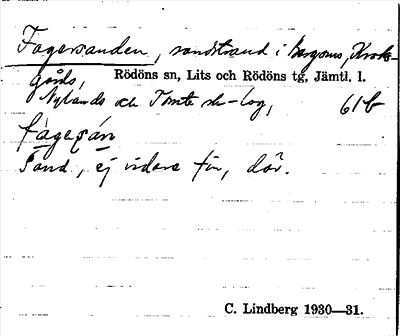 Fagersanden, sandstrand i Bergoms, Kroks-
gårds, Rödöns sn, Lits och Rödöns tg, Jämtl. l.
Nylands och Tomte sk-lag, 61b
fàgeşán
Sand, ej vidare fin, där.
C. Lindberg 1930—31.